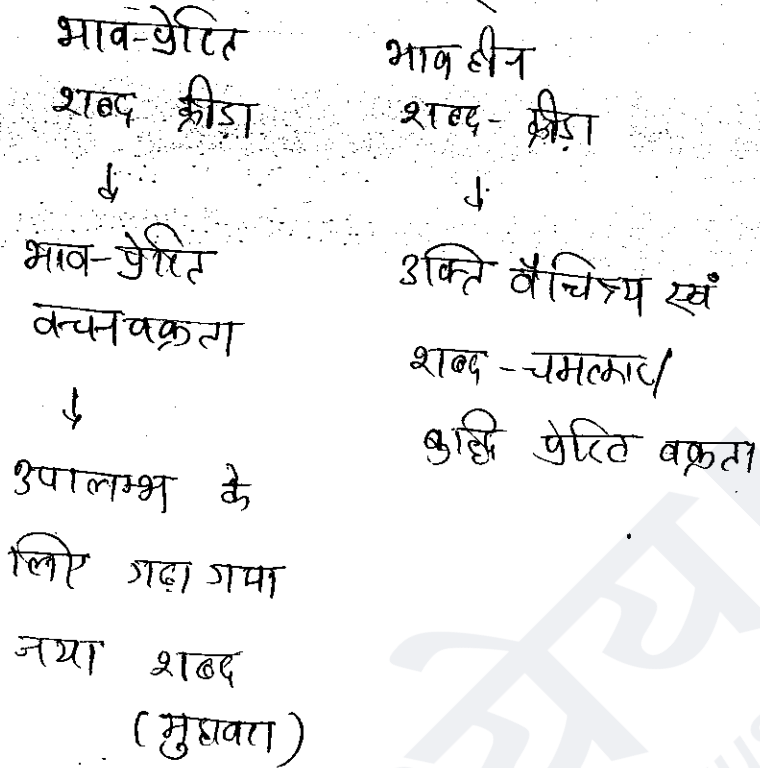 भाव-प्रेरित
शब्द क्रीड़ा
↓
भाव-प्रेरित
वचन वक्रता
↓
उपालम्भ के
लिए गढ़ा गया
नया शब्द
(मुहावरा)
भाव हीन
शब्द - क्रीड़ा
↓
उक्ति वैचित्र्य एवं
शब्द - चमत्कार/
बुद्धि प्रेरित वक्रता